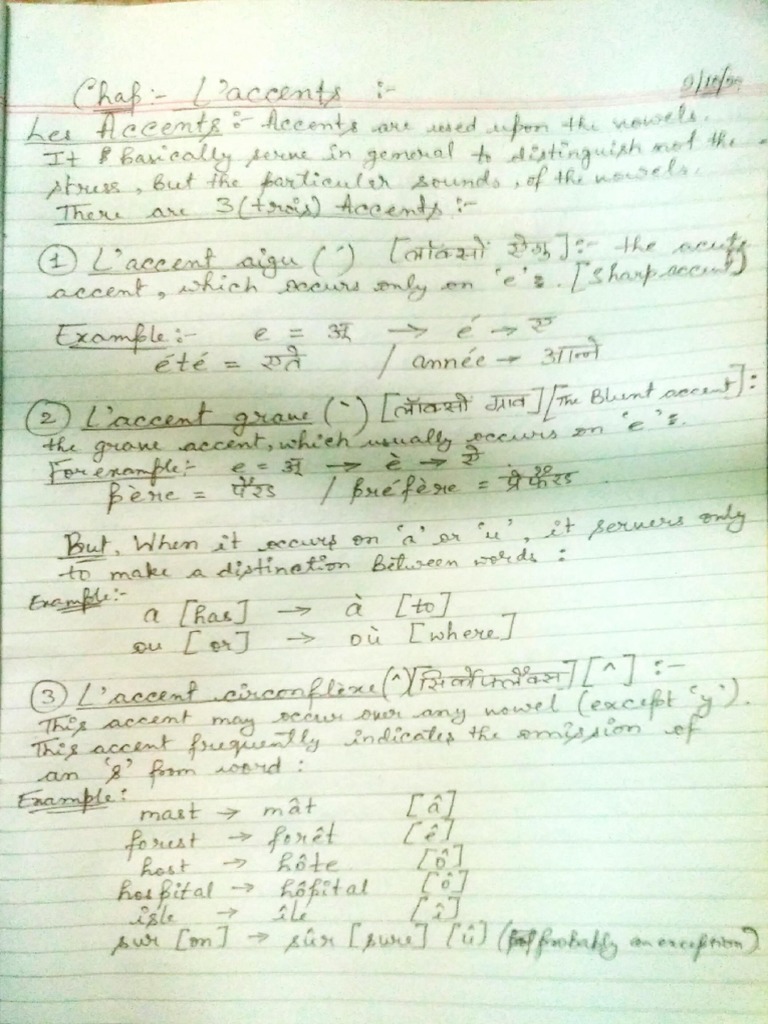 Chap:- L'accents :-
Les Accents:- Accents are used upon the vowels.
It basically serve in general to distinguish not the
stress, but the particular sounds, of the vowels.
There are 3(trois) Accents:-
① L'accent aigu (´) [लॉक्सों ऐगु]:- the acute
accent, which occurs only on 'e's. [Sharp accent]
Example:- e = अ → é → ए
été = एते / année → आन्ने
② L'accent grave (`) [लॉक्सों ग्राव] [The Blunt accent]:
the grave accent, which usually occurs on 'e's.
For example:- e = अ → è → ऐ
père = / préfère =
But, When it occurs on 'a' or 'u', it servers only
to make a distinction between words :
Example:-
a [has] → à [to]
ou [or] → où [where]
③ L'accent circonflèxe(^) [सिर्कोंफ्लैक्स] [^] :-
This accent may occur over any vowel (except 'y').
This accent frequently indicates the omission of
an 's' from word :
Example:
mast → mât [â]
forest → forêt [ê]
host → hôte [ô]
hospital → hôpital [ô]
isle → île [î]
sur [on] → sûr [sure] [û] (probably an exception)